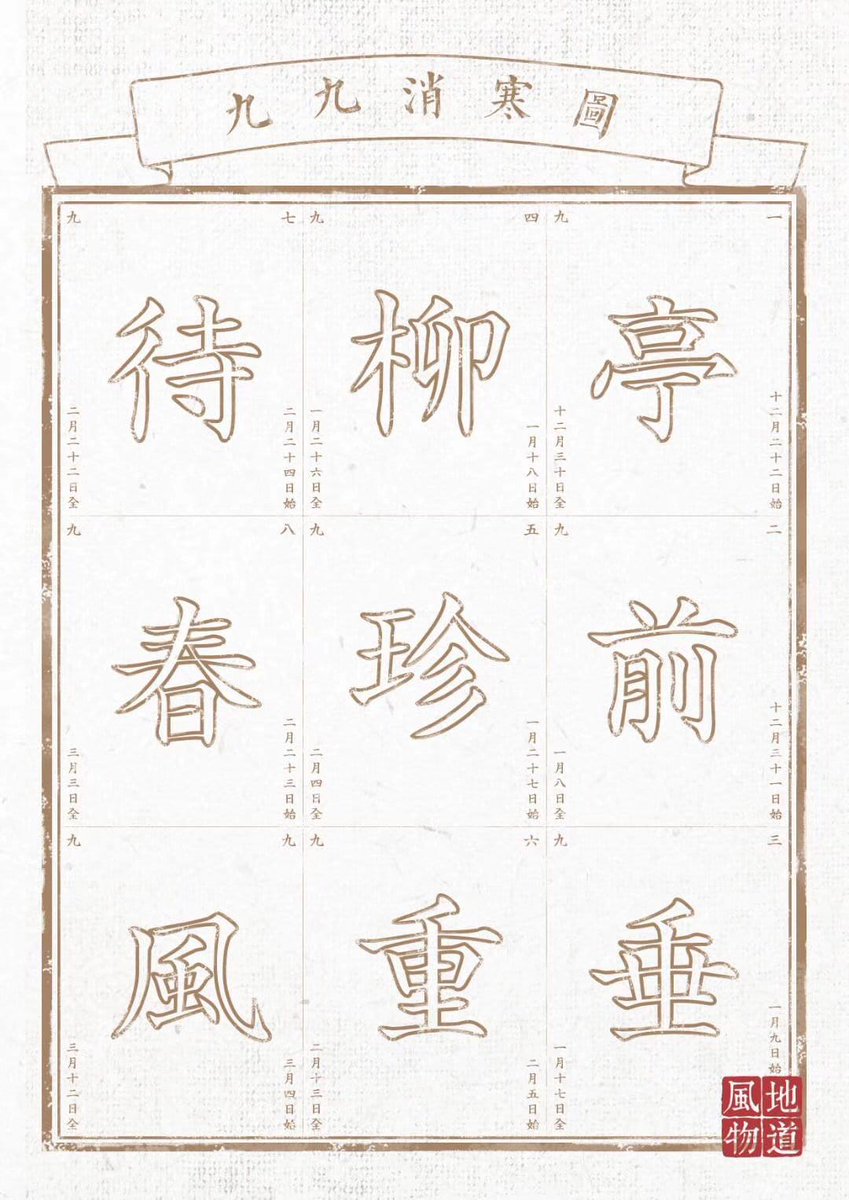 九九消寒圖
一九
亭
十二月二十二日始
十二月三十日全
二九
前
十二月三十一日始
一月八日全
三九
垂
一月九日始
一月十七日全
四九
柳
一月十八日始
一月二十六日全
五九
珍
一月二十七日始
二月四日全
六九
重
二月五日始
二月十三日全
七九
待
二月二十四日始
二月二十二日全
八九
春
二月二十三日始
三月三日全
九九
風
三月四日始
三月十二日全
地道
風物